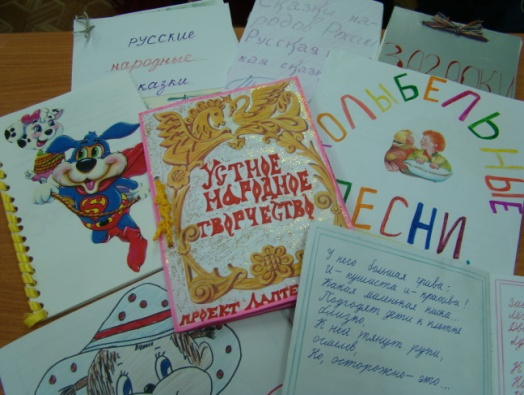 РУССКИЕ
народные
сказки
Сказки на-
родов России
Русская
кая сказка
ЗАГАДКИ
КОЛЫБЕЛЬНЫЕ
ПЕСНИ.
УСТНОЕ
НАРОДНОЕ
ТВОРЧЕСТВО
ПРОЕКТ ЛАПТЕ
У него большая грива:
И - пушиста и - красива!
Какая маленькая
Подходят дети к клетке
близко,
К ней тянут руки,
осмелев,
Но, осторожно - это...